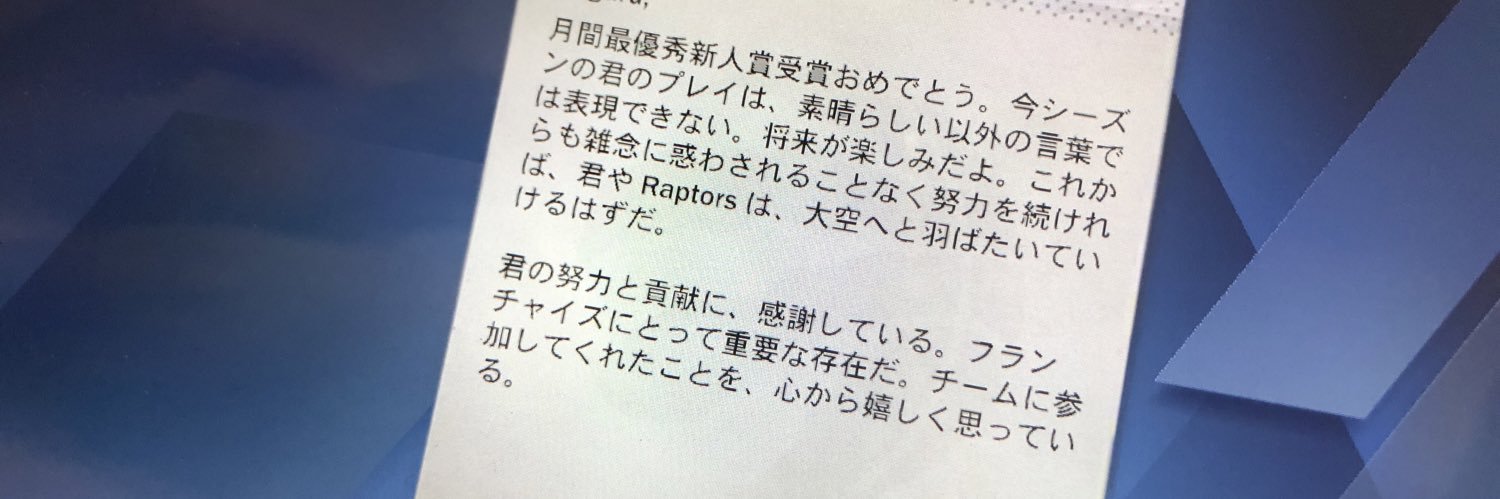 月間最優秀新人賞受賞おめでとう。今シーズ
ンの君のプレイは、素晴らしい以外の言葉で
は表現できない。将来が楽しみだよ。これか
らも雑念に惑わされることなく努力を続けれ
ば、君や Raptors は、大空へと羽ばたいてい
けるはずだ。
君の努力と貢献に、感謝している。フラン
チャイズにとって重要な存在だ。チームに参
加してくれたことを、心から嬉しく思ってい
る。